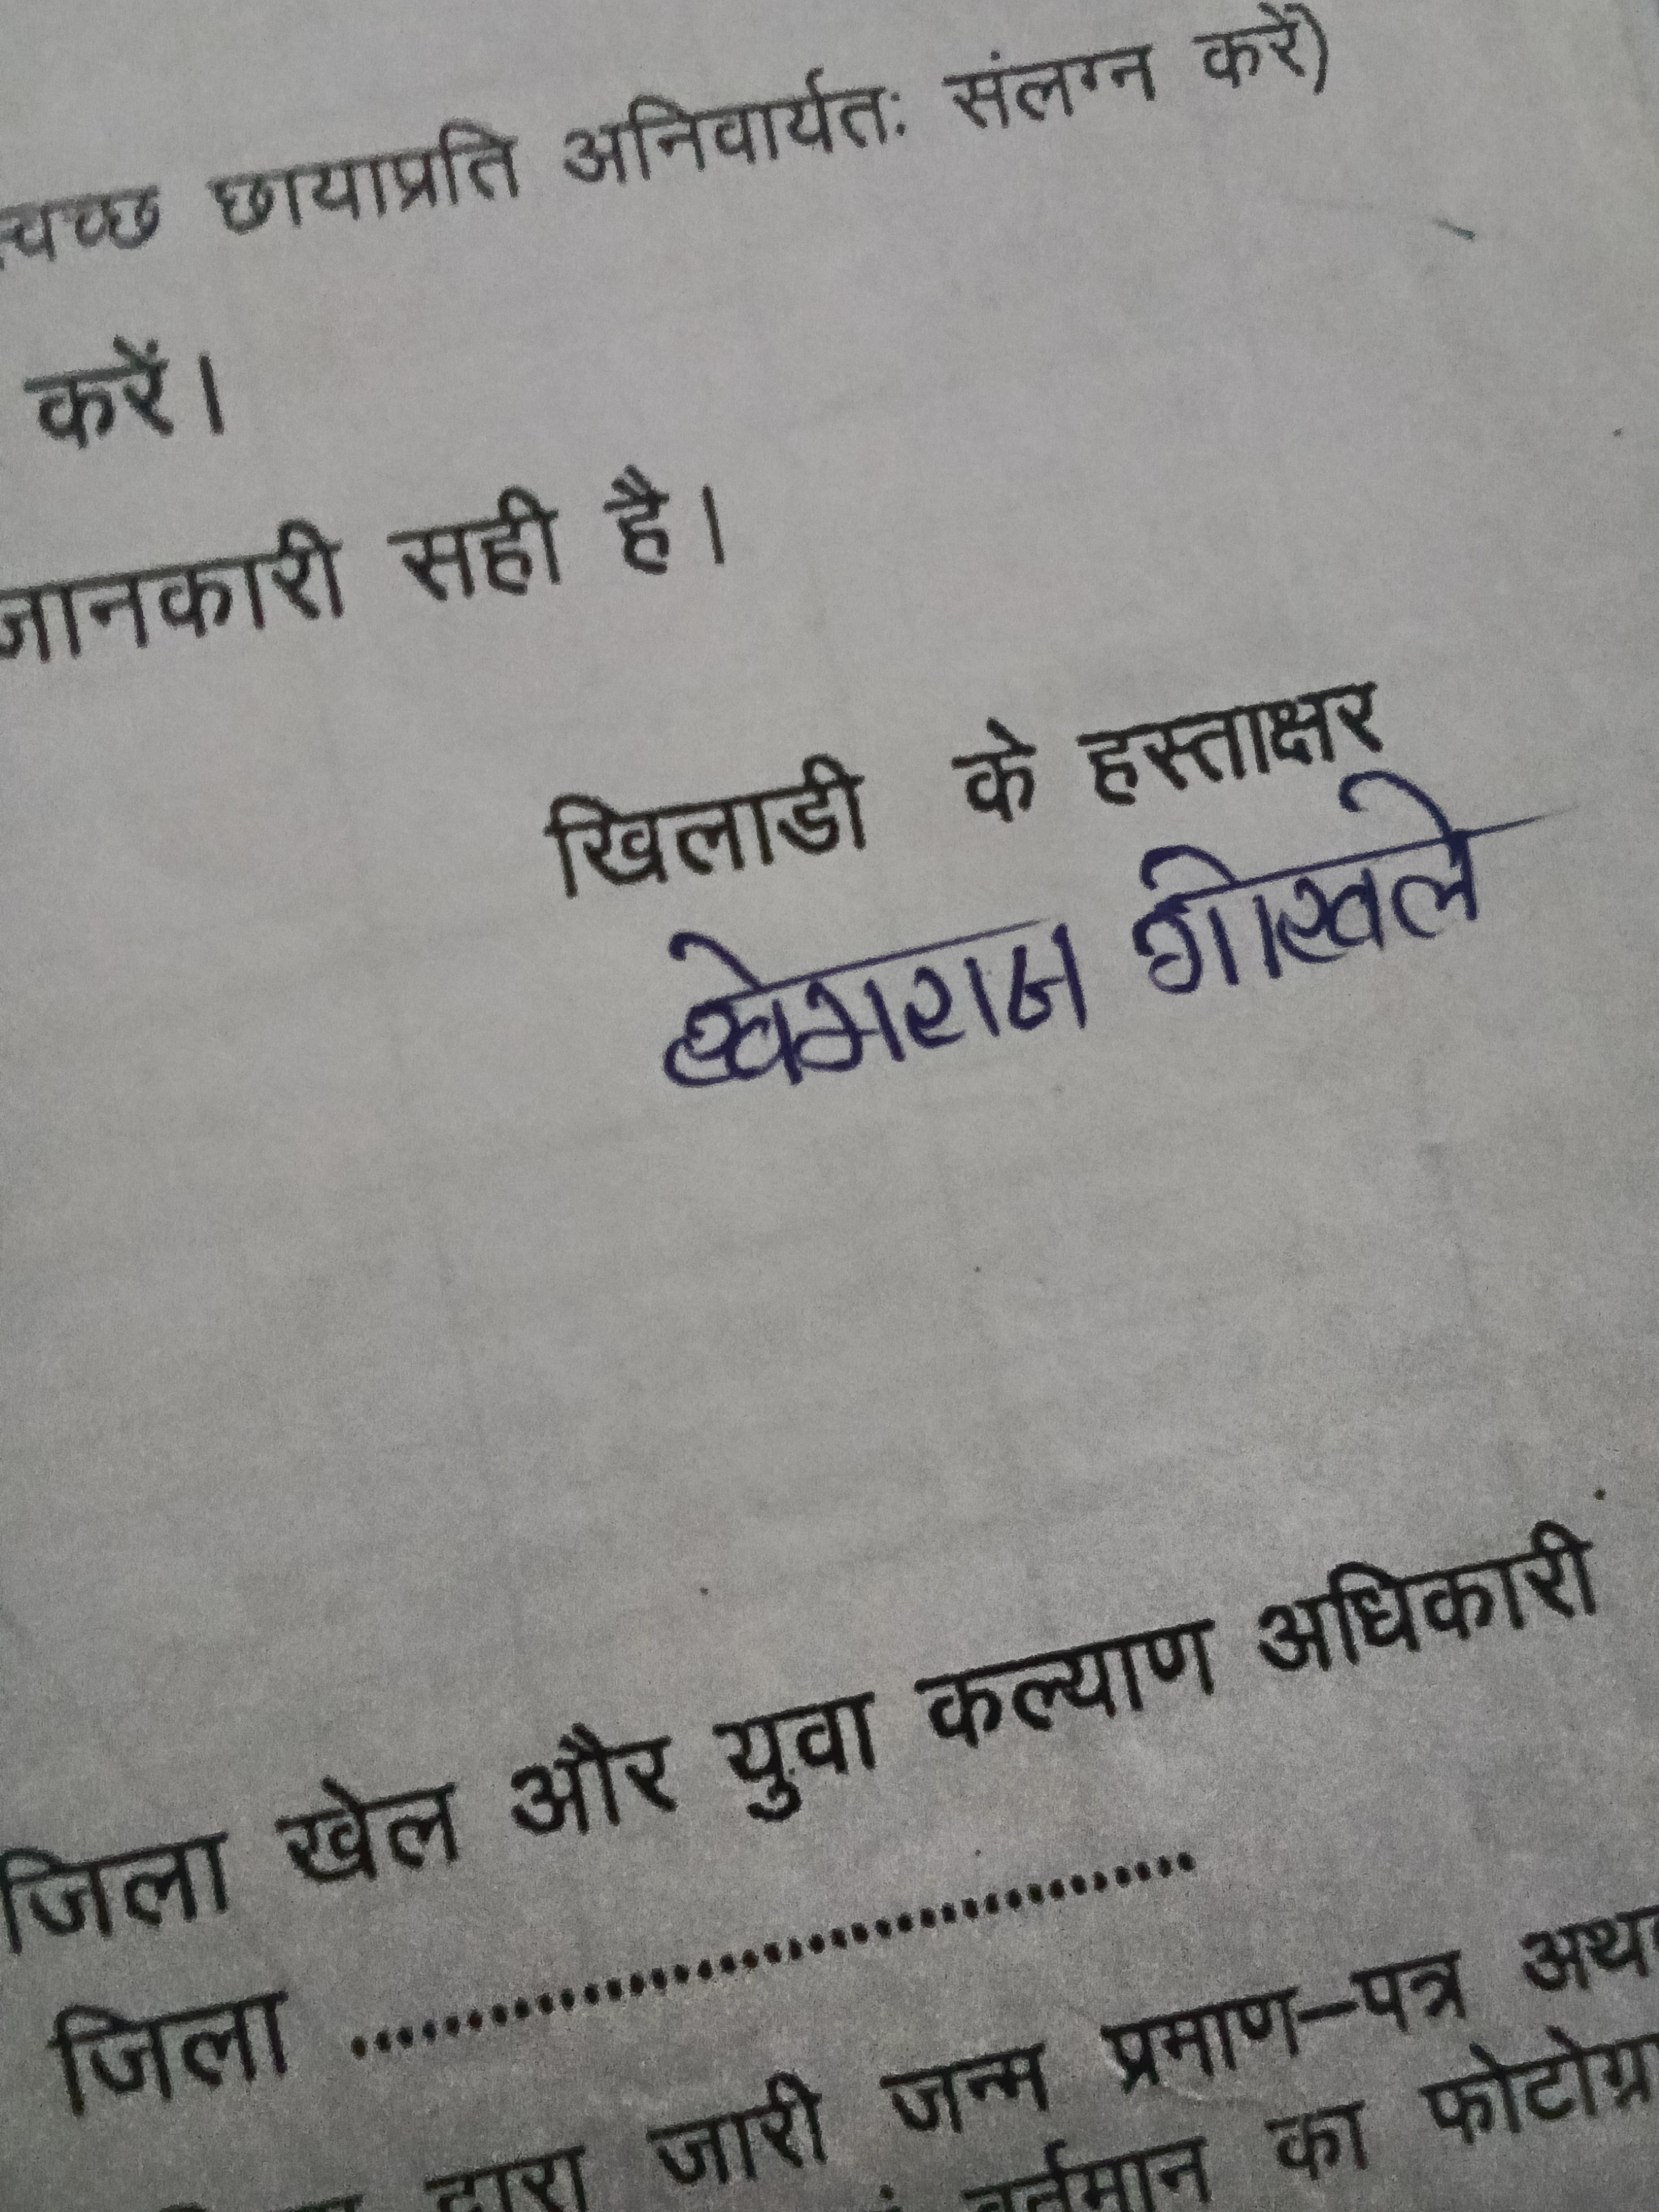 स्वच्छ छायाप्रति अनिवार्यतः संलग्न करें)
करें।
जानकारी सही है।
खिलाडी के हस्ताक्षर
खेमराज गोखले
जिला खेल और युवा कल्याण अधिकारी
जिला ........................................
द्वारा जारी जन्म प्रमाण–पत्र
वर्तमान का